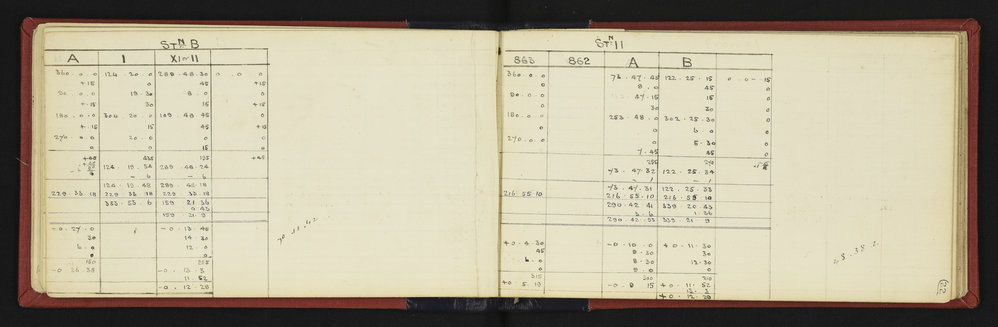 STN B
A 1 XI or 11
360 . 0 . 0 124 . 20 . 0 289 . 48 . 30 0 . 0 . 0
+15 0 45 +15
90 . 0 . 0 19 . 30 8 . 0 0
+15 30 15 +15
180 . 0 . 0 304 . 20 . 0 109 . 48 . 45 0
+15 15 45 +15
270 . 0 . 0 20 . 0 0 0
0 0 15 0
124 . 19 . 54 289 . 48 . 24
- 6 - 6
124 . 19 . 48 289 . 48 . 18
229 . 33 . 18 229 . 33 . 18 229 . 33 . 18
353 . 53 . 6 159 . 21 . 36
159 . 21 . 9
- 0 . 27 . 0 - 0 . 13 . 45
30 14 . 30
6 . 0 12 . 0
0 0
- 0 . 26 . 38 - 0 . 13 . 3
11 . 52
- 0 . 12 . 28
STN 11
863 862 A B
360 . 0 . 0 73 . 47 . 45 122 . 25 . 15 0 . 0 - 15
0 8 . 0 45 0
90 . 0 . 0 47 . 15 15 0
0 30 30 0
180 . 0 . 0 253 . 48 . 0 302 . 25 . 30
0 0 6 . 0 0
270 . 0 . 0 0 5 . 30 0
0 7 . 45 45 0
255 270
73 . 47 . 32 122 . 25 . 34
- 1 - 1
73 . 47 . 31 122 . 25 . 33
216 . 55 . 10 216 . 55 . 10 216 . 55 . 10
290 . 42 . 41 339 . 20 . 43
1 . 36
339 . 21 . 9
+ 0 . 4 . 30 - 0 . 10 . 0 + 0 . 11 . 30
45 8 . 30 30
6 . 0 8 . 30 12 . 30
0 9 . 0 0
315 300 210
+ 0 . 5 . 19 - 0 . 8 . 15 + 0 . 11 . 52
+ 0 . 12 . 28
22